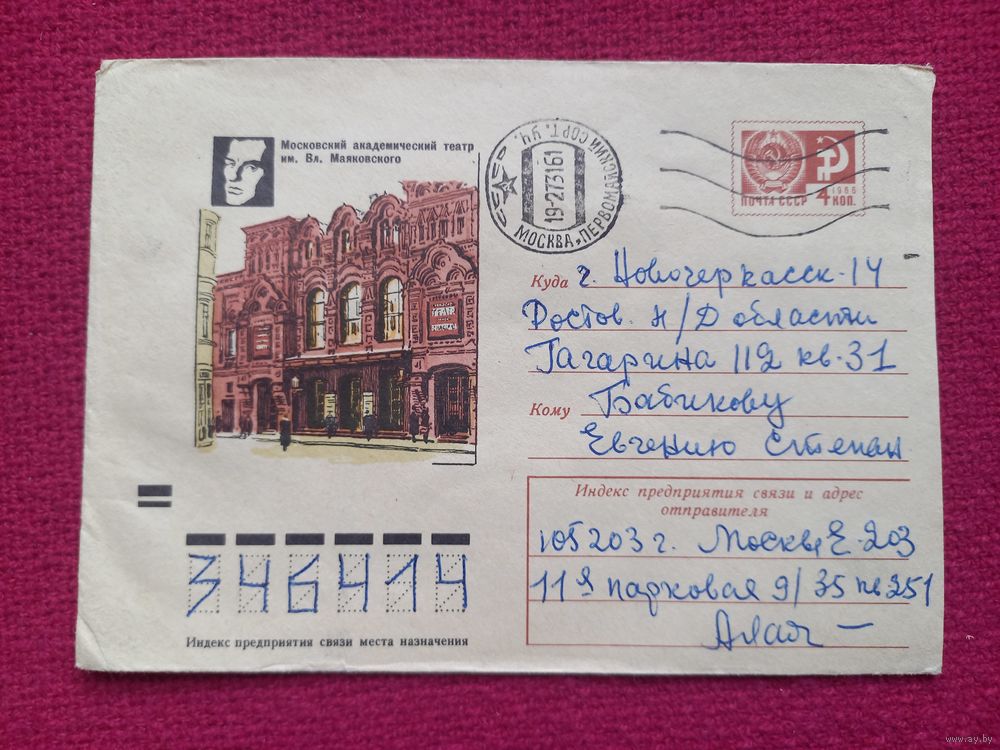 Московский академический театр
им. Вл. Маяковского
СССР
19-273161
МОСКВА, ПЕРВОМАЙСКИЙ СОРТ. УЧ.
1966
ПОЧТА СССР 4 КОП.
ТЕАТР
Куда г. Новочеркасск-14
Ростов. н/Д области
Гагарина 112 кв. 31
Кому Бабикову
Евгению Степан
Индекс предприятия связи и адрес
отправителя
105203 г. Москва, Е-203
11я парковая 9/35 кв 251
346414
Индекс предприятия связи места назначения
www.ay.by